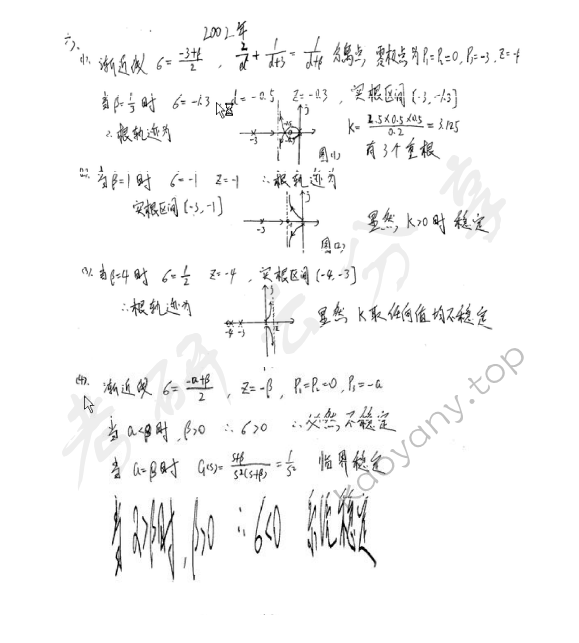 2002年
六、
(1). 渐近线 σ = (-3+β)/2 , 2/d + 1/(d+3) = 1/(d+β) 分离点, 零极点为 P₁=P₂=0, P₃=-3, Z=-β
当 β=1/3 时 σ=-1.3 d=-0.5 Z=-0.3 , 实根区间 [-3, -1.3]
∴根轨迹为 K= (2.5×0.5×0.5)/0.2 = 3.125
图(1) 有3个重根
(2). 当β=1时 σ=-1 Z=-1 ∴根轨迹为
实根区间 [-3, -1] 显然, K>0时 稳定
图(2)
(3). 当β=4时 σ=1/2 Z=-4 , 实根区间 [-4, -3]
∴根轨迹为 显然 K取任何值均不稳定
(4). 渐近线 σ = (-a+β)/2 , Z=-β , P₁=P₂=0, P₃=-a
当 a<β时 , β>0 ∴σ>0 ∴必然不稳定
当 a=β时 G(s)= (s+β)/(s²(s+β)) = 1/s² 临界稳定
当a>β时, β>0 ∴σ<0 系统稳定
考研云分享
kaoyany.top